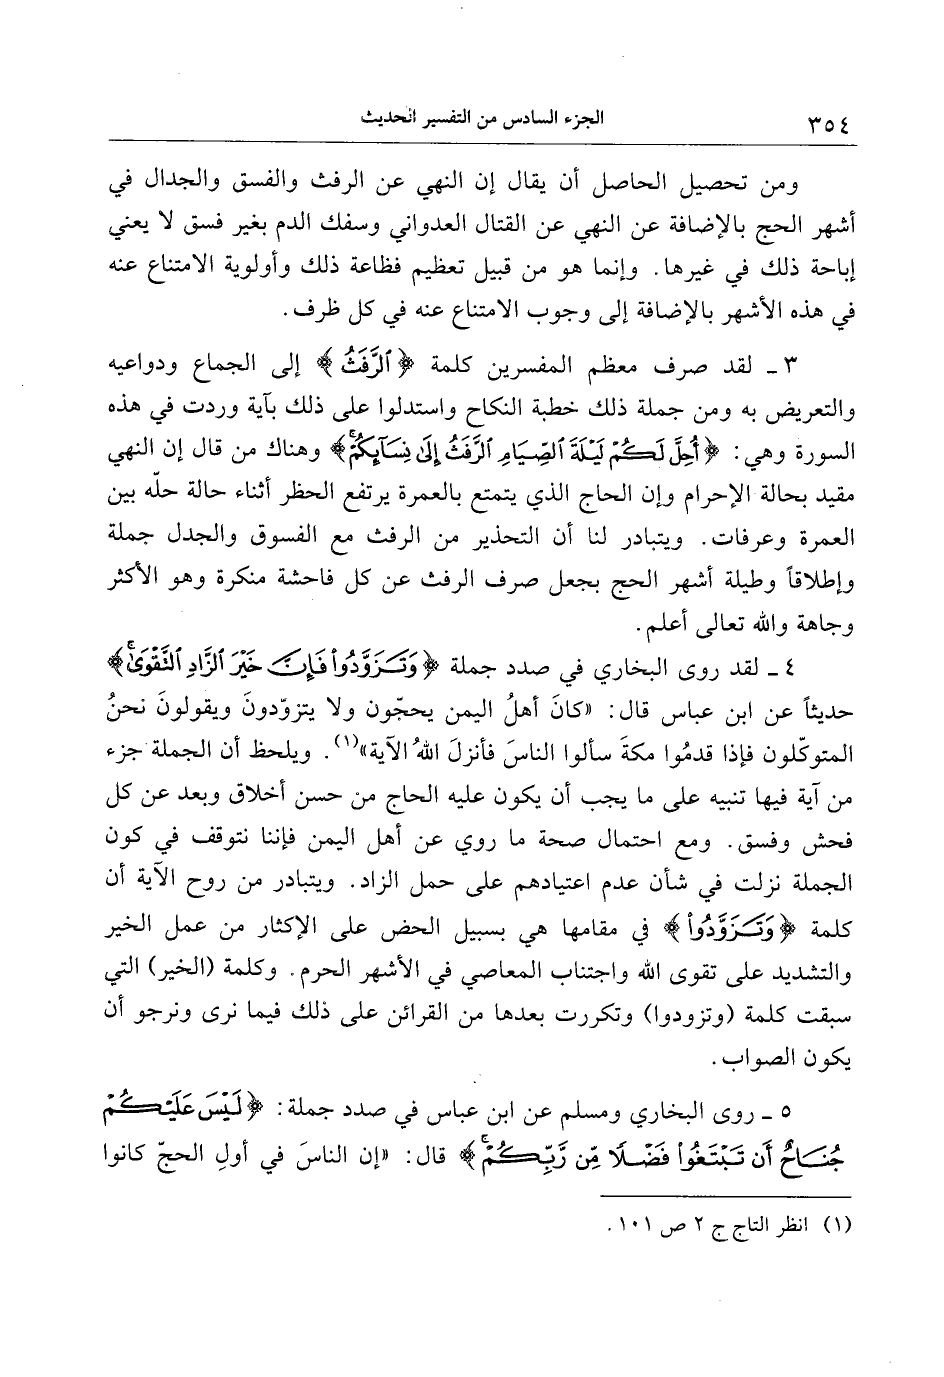 ٣٥٤ الجزء السادس من التفسير الحديث
ومن تحصيل الحاصل أن يقال إن النهي عن الرفث والفسق والجدال في
أشهر الحج بالإضافة عن النهي عن القتال العدواني وسفك الدم بغير فسق لا يعني
إباحة ذلك في غيرها. وإنما هو من قبيل تعظيم فظاعة ذلك وأولوية الامتناع عنه
في هذه الأشهر بالإضافة إلى وجوب الامتناع عنه في كل ظرف.
٣ ـ لقد صرف معظم المفسرين كلمة ﴿ٱلرَّفَثُ﴾ إلى الجماع ودواعيه
والتعريض به ومن جملة ذلك خطبة النكاح واستدلوا على ذلك بآية وردت في هذه
السورة وهي: ﴿أُحِلَّ لَكُمْ لَيْلَةَ ٱلصِّيَامِ ٱلرَّفَثُ إِلَىٰ نِسَآئِكُمْۚ﴾ وهناك من قال إن النهي
مقيد بحالة الإحرام وإن الحاج الذي يتمتع بالعمرة يرتفع الحظر أثناء حالة حلّه بين
العمرة وعرفات. ويتبادر لنا أن التحذير من الرفث مع الفسوق والجدل جملة
وإطلاقاً وطيلة أشهر الحج بجعل صرف الرفث عن كل فاحشة منكرة وهو الأكثر
وجاهة والله تعالى أعلم.
٤ ـ لقد روى البخاري في صدد جملة ﴿وَتَزَوَّدُواْ فَإِنَّ خَيْرَ ٱلزَّادِ ٱلتَّقْوَىٰۚ﴾
حديثاً عن ابن عباس قال: «كانَ أهلُ اليمن يحجّون ولا يتزوّدونَ ويقولونَ نحنُ
المتوكّلون فإذا قدمُوا مكةَ سألوا الناسَ فأنزلَ اللهُ الآية»(١). ويلحظ أن الجملة جزء
من آية فيها تنبيه على ما يجب أن يكون عليه الحاج من حسن أخلاق وبعد عن كل
فحش وفسق. ومع احتمال صحة ما روي عن أهل اليمن فإننا نتوقف في كون
الجملة نزلت في شأن عدم اعتيادهم على حمل الزاد. ويتبادر من روح الآية أن
كلمة ﴿وَتَزَوَّدُواْ﴾ في مقامها هي بسبيل الحض على الإكثار من عمل الخير
والتشديد على تقوى الله واجتناب المعاصي في الأشهر الحرم. وكلمة (الخير) التي
سبقت كلمة (وتزودوا) وتكررت بعدها من القرائن على ذلك فيما نرى ونرجو أن
يكون الصواب.
٥ ـ روى البخاري ومسلم عن ابن عباس في صدد جملة: ﴿لَيْسَ عَلَيْكُمْ
جُنَاحٌ أَن تَبْتَغُواْ فَضْلًا مِّن رَّبِّكُمْۚ﴾ قال: «إن الناسَ في أولِ الحجّ كانوا
(١) انظر التاج ج ٢ ص ١٠١.